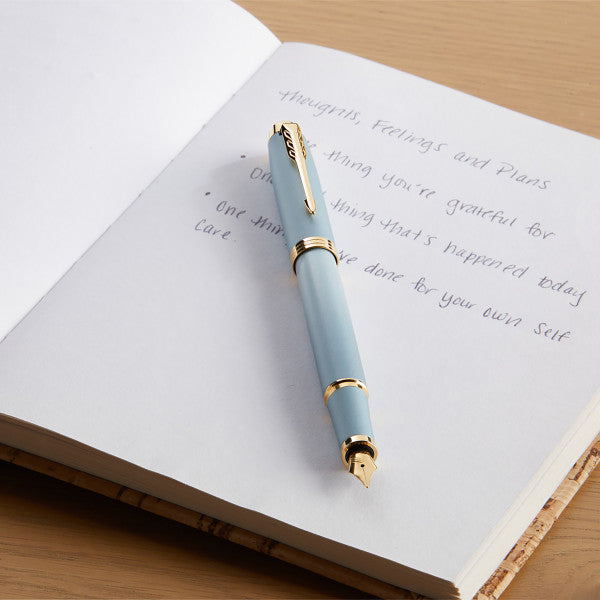 thoughts, Feelings and Plans
• thing you're grateful for
thing that's happened today
• one done for your own self
care.